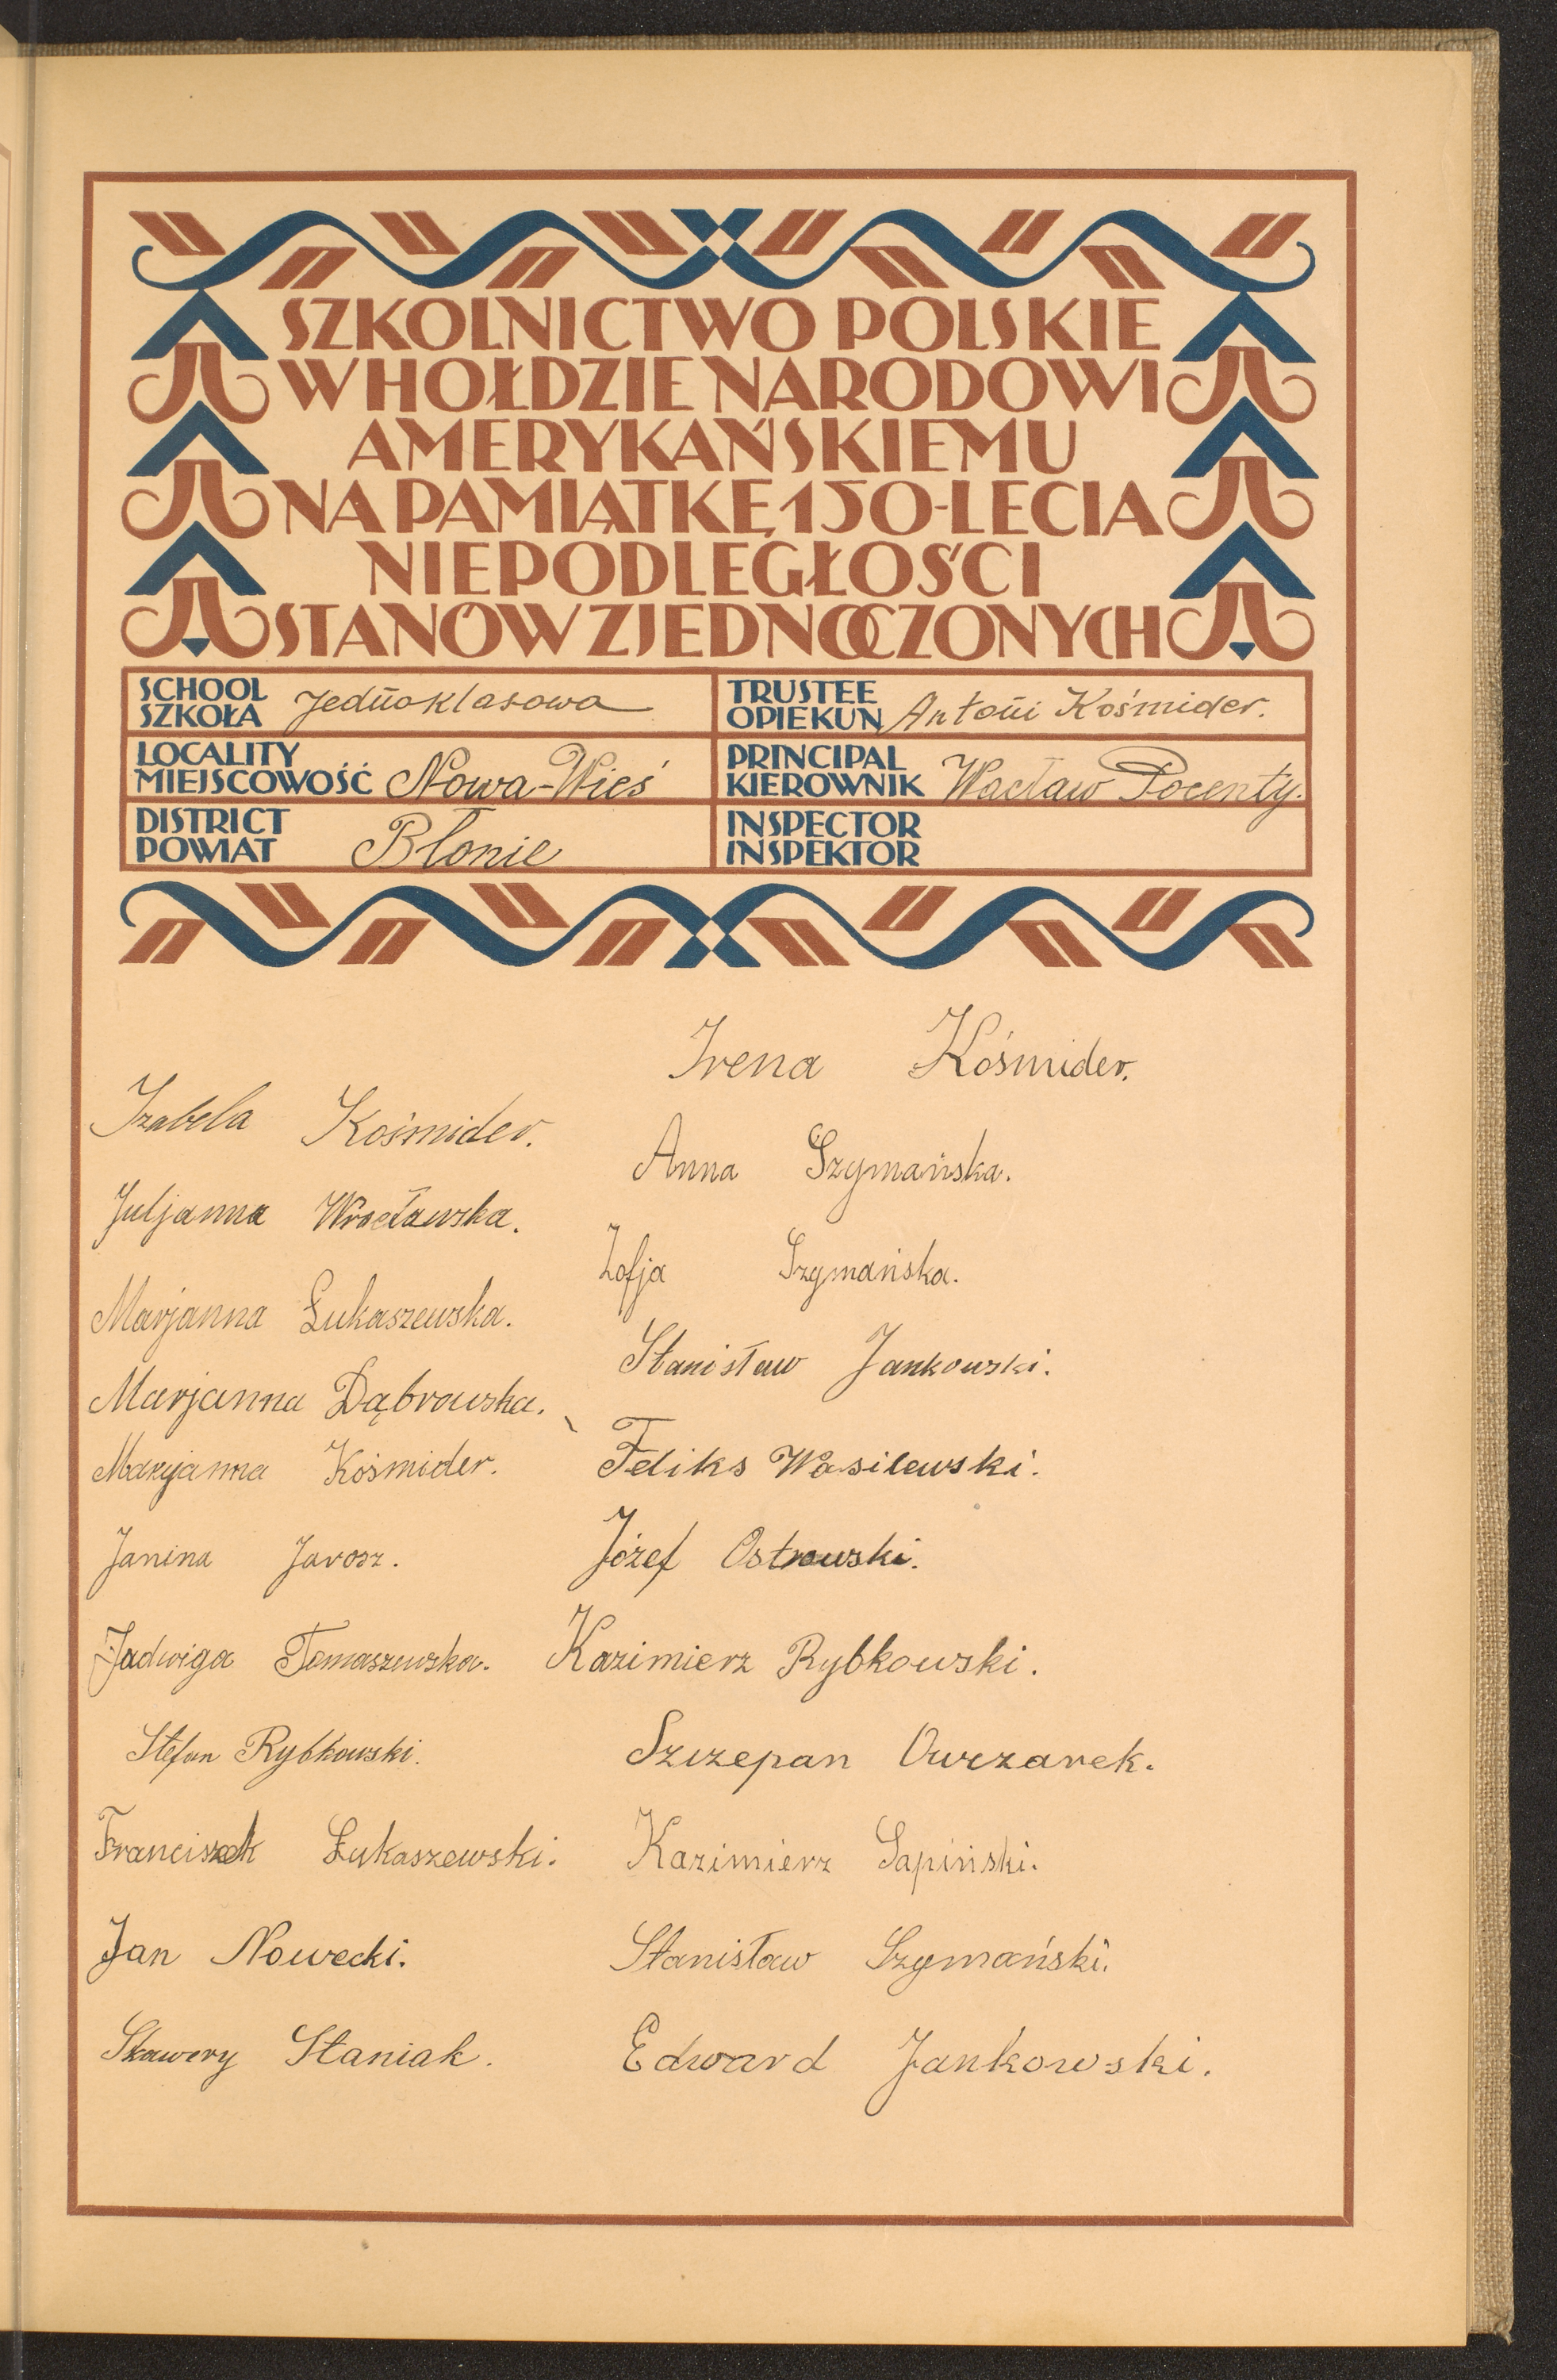 SZKOLNICTWO POLSKIE
W HOŁDZIE NARODOWI
AMERYKAŃSKIEMU
NA PAMIĄTKĘ 150-LECIA
NIEPODLEGŁOŚCI
STANÓW ZJEDNOCZONYCH
SCHOOL
SZKOŁA
Jednoklasowa
TRUSTEE
OPIEKUN
Antoni Kośmider.
LOCALITY
MIEJSCOWOŚĆ
Nowa-Wieś
PRINCIPAL
KIEROWNIK
Wacław Pocenty.
DISTRICT
POWIAT
Błonie
INSPECTOR
INSPEKTOR
Izabela Kośmider.
Juljanna Wrocławska.
Marjanna Łukaszewska.
Marjanna Dąbrowska.
Maryjanna Kośmider.
Janina Jarosz.
Jadwiga Tomaszewska.
Stefan Rybkowski.
Franciszek Łukaszewski.
Jan Nowecki.
Skawery Staniak.
Irena Kośmider.
Anna Szymańska.
Zofja Szymańska.
Stanisław Jankowski.
Feliks Wasilewski.
Józef Ostrowski.
Kazimierz Rybkowski.
Szczepan Owczarek.
Kazimierz Sapiński.
Stanisław Szymański.
Edward Jankowski.